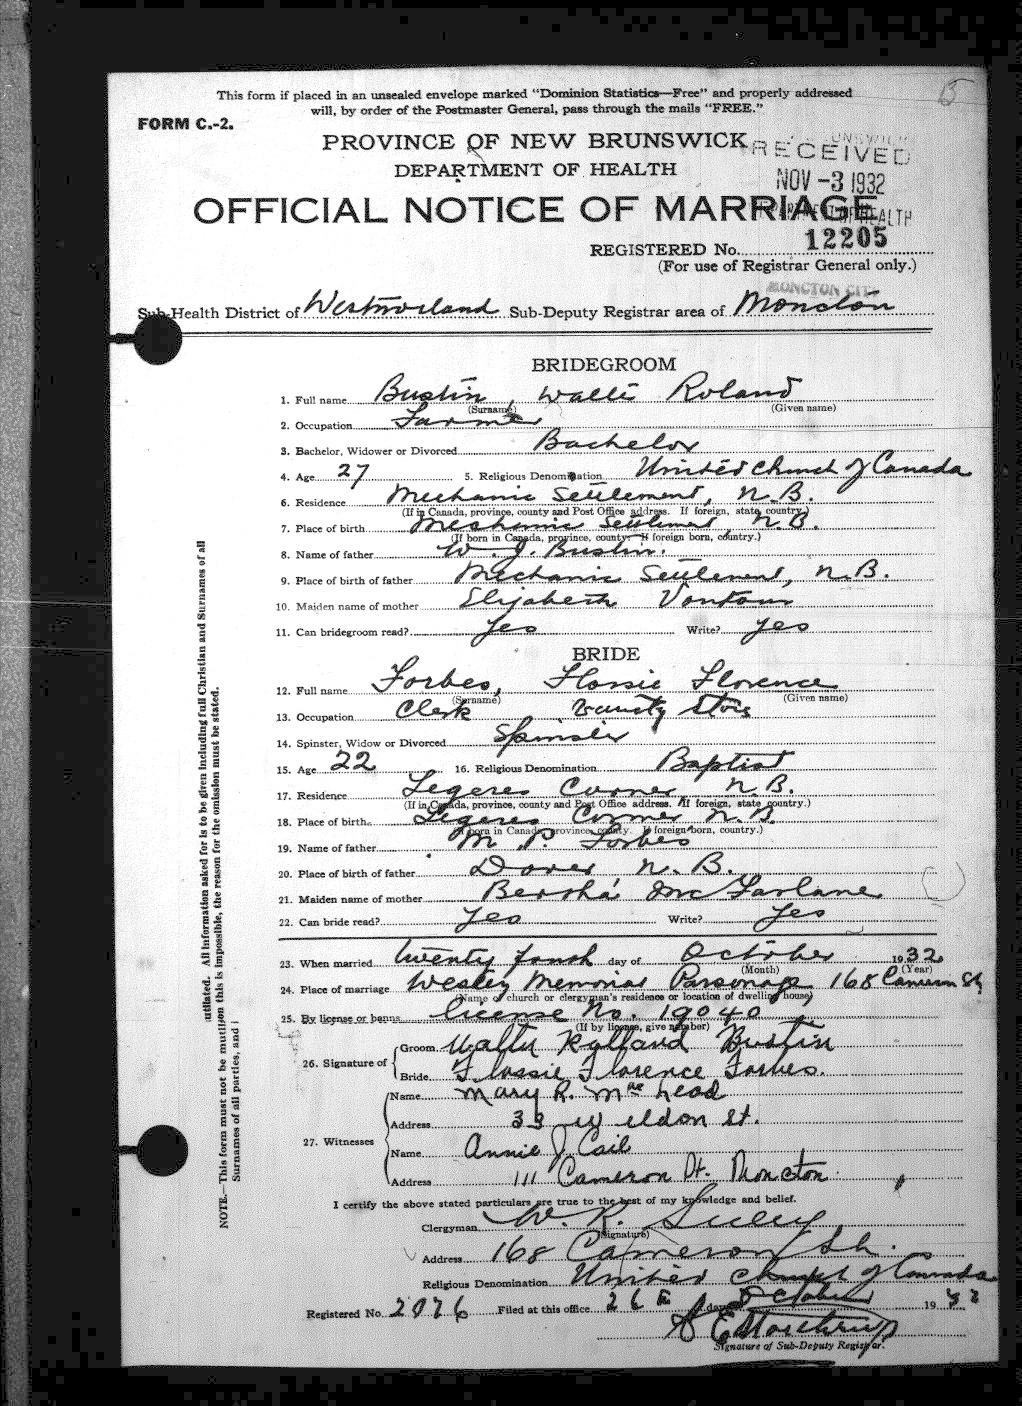 This form if placed in an unsealed envelope marked "Dominion Statistics—Free" and properly addressed
will, by order of the Postmaster General, pass through the mails "FREE."
FORM C.-2.
PROVINCE OF NEW BRUNSWICK
RECEIVED
DEPARTMENT OF HEALTH
NOV -3 1932
OFFICIAL NOTICE OF MARRIAGE
DEPARTMENT OF HEALTH
REGISTERED No. 12205
(For use of Registrar General only.)
MONCTON CITY
Sub-Health District of Westmorland Sub-Deputy Registrar area of Moncton
BRIDEGROOM
1. Full name Bustin, Walter Roland
(Surname) (Given name)
2. Occupation Farmer
3. Bachelor, Widower or Divorced Bachelor
4. Age 27 5. Religious Denomination United Church of Canada
6. Residence Mechanic Settlement, N.B.
(If in Canada, province, county and Post Office address. If foreign, state country.)
7. Place of birth Mechanic Settlement, N.B.
(If born in Canada, province, county. If foreign born, country.)
8. Name of father W. J. Bustin.
9. Place of birth of father Mechanic Settlement, N.B.
10. Maiden name of mother Elizabeth
11. Can bridegroom read? Yes Write? yes
BRIDE
12. Full name Forbes, Flossie Florence
(Surname) (Given name)
13. Occupation Clerk Variety Store
14. Spinster, Widow or Divorced Spinster
15. Age 22 16. Religious Denomination Baptist
17. Residence Legeres Corner, N.B.
(If in Canada, province, county and Post Office address. If foreign, state country.)
18. Place of birth Legeres Corner N.B.
(If born in Canada, province, county. If foreign born, country.)
19. Name of father M. P. Forbes
20. Place of birth of father Dover N.B.
21. Maiden name of mother Bertha McFarlane
22. Can bride read? Yes Write? Yes
23. When married twenty fourth day of October 1932
(Month) (Year)
24. Place of marriage Wesley Memorial Parsonage 168 Cameron St.
(Name of church or clergyman's residence or location of dwelling house)
25. By license or banns License No. 19040
(If by license, give number)
26. Signature of
Groom Walter Rylland Bustin
Bride Flossie Florence Forbes.
27. Witnesses
Name Mary R. MacLeod
Address 33 Weldon St.
Name Annie J. Cail
Address 111 Cameron St. Moncton
I certify the above stated particulars are true to the best of my knowledge and belief.
Clergyman W. R.
(Signature)
Address 168 Cameron St.
Religious Denomination United Church of Canada
Registered No. 2076 Filed at this office 26 day October 1932
Signature of Sub-Deputy Registrar.
NOTE.—This form must not be mutilated. All information asked for is to be given including full Christian and Surnames of all
Surnames of all parties, and if this is impossible, the reason for the omission must be stated.